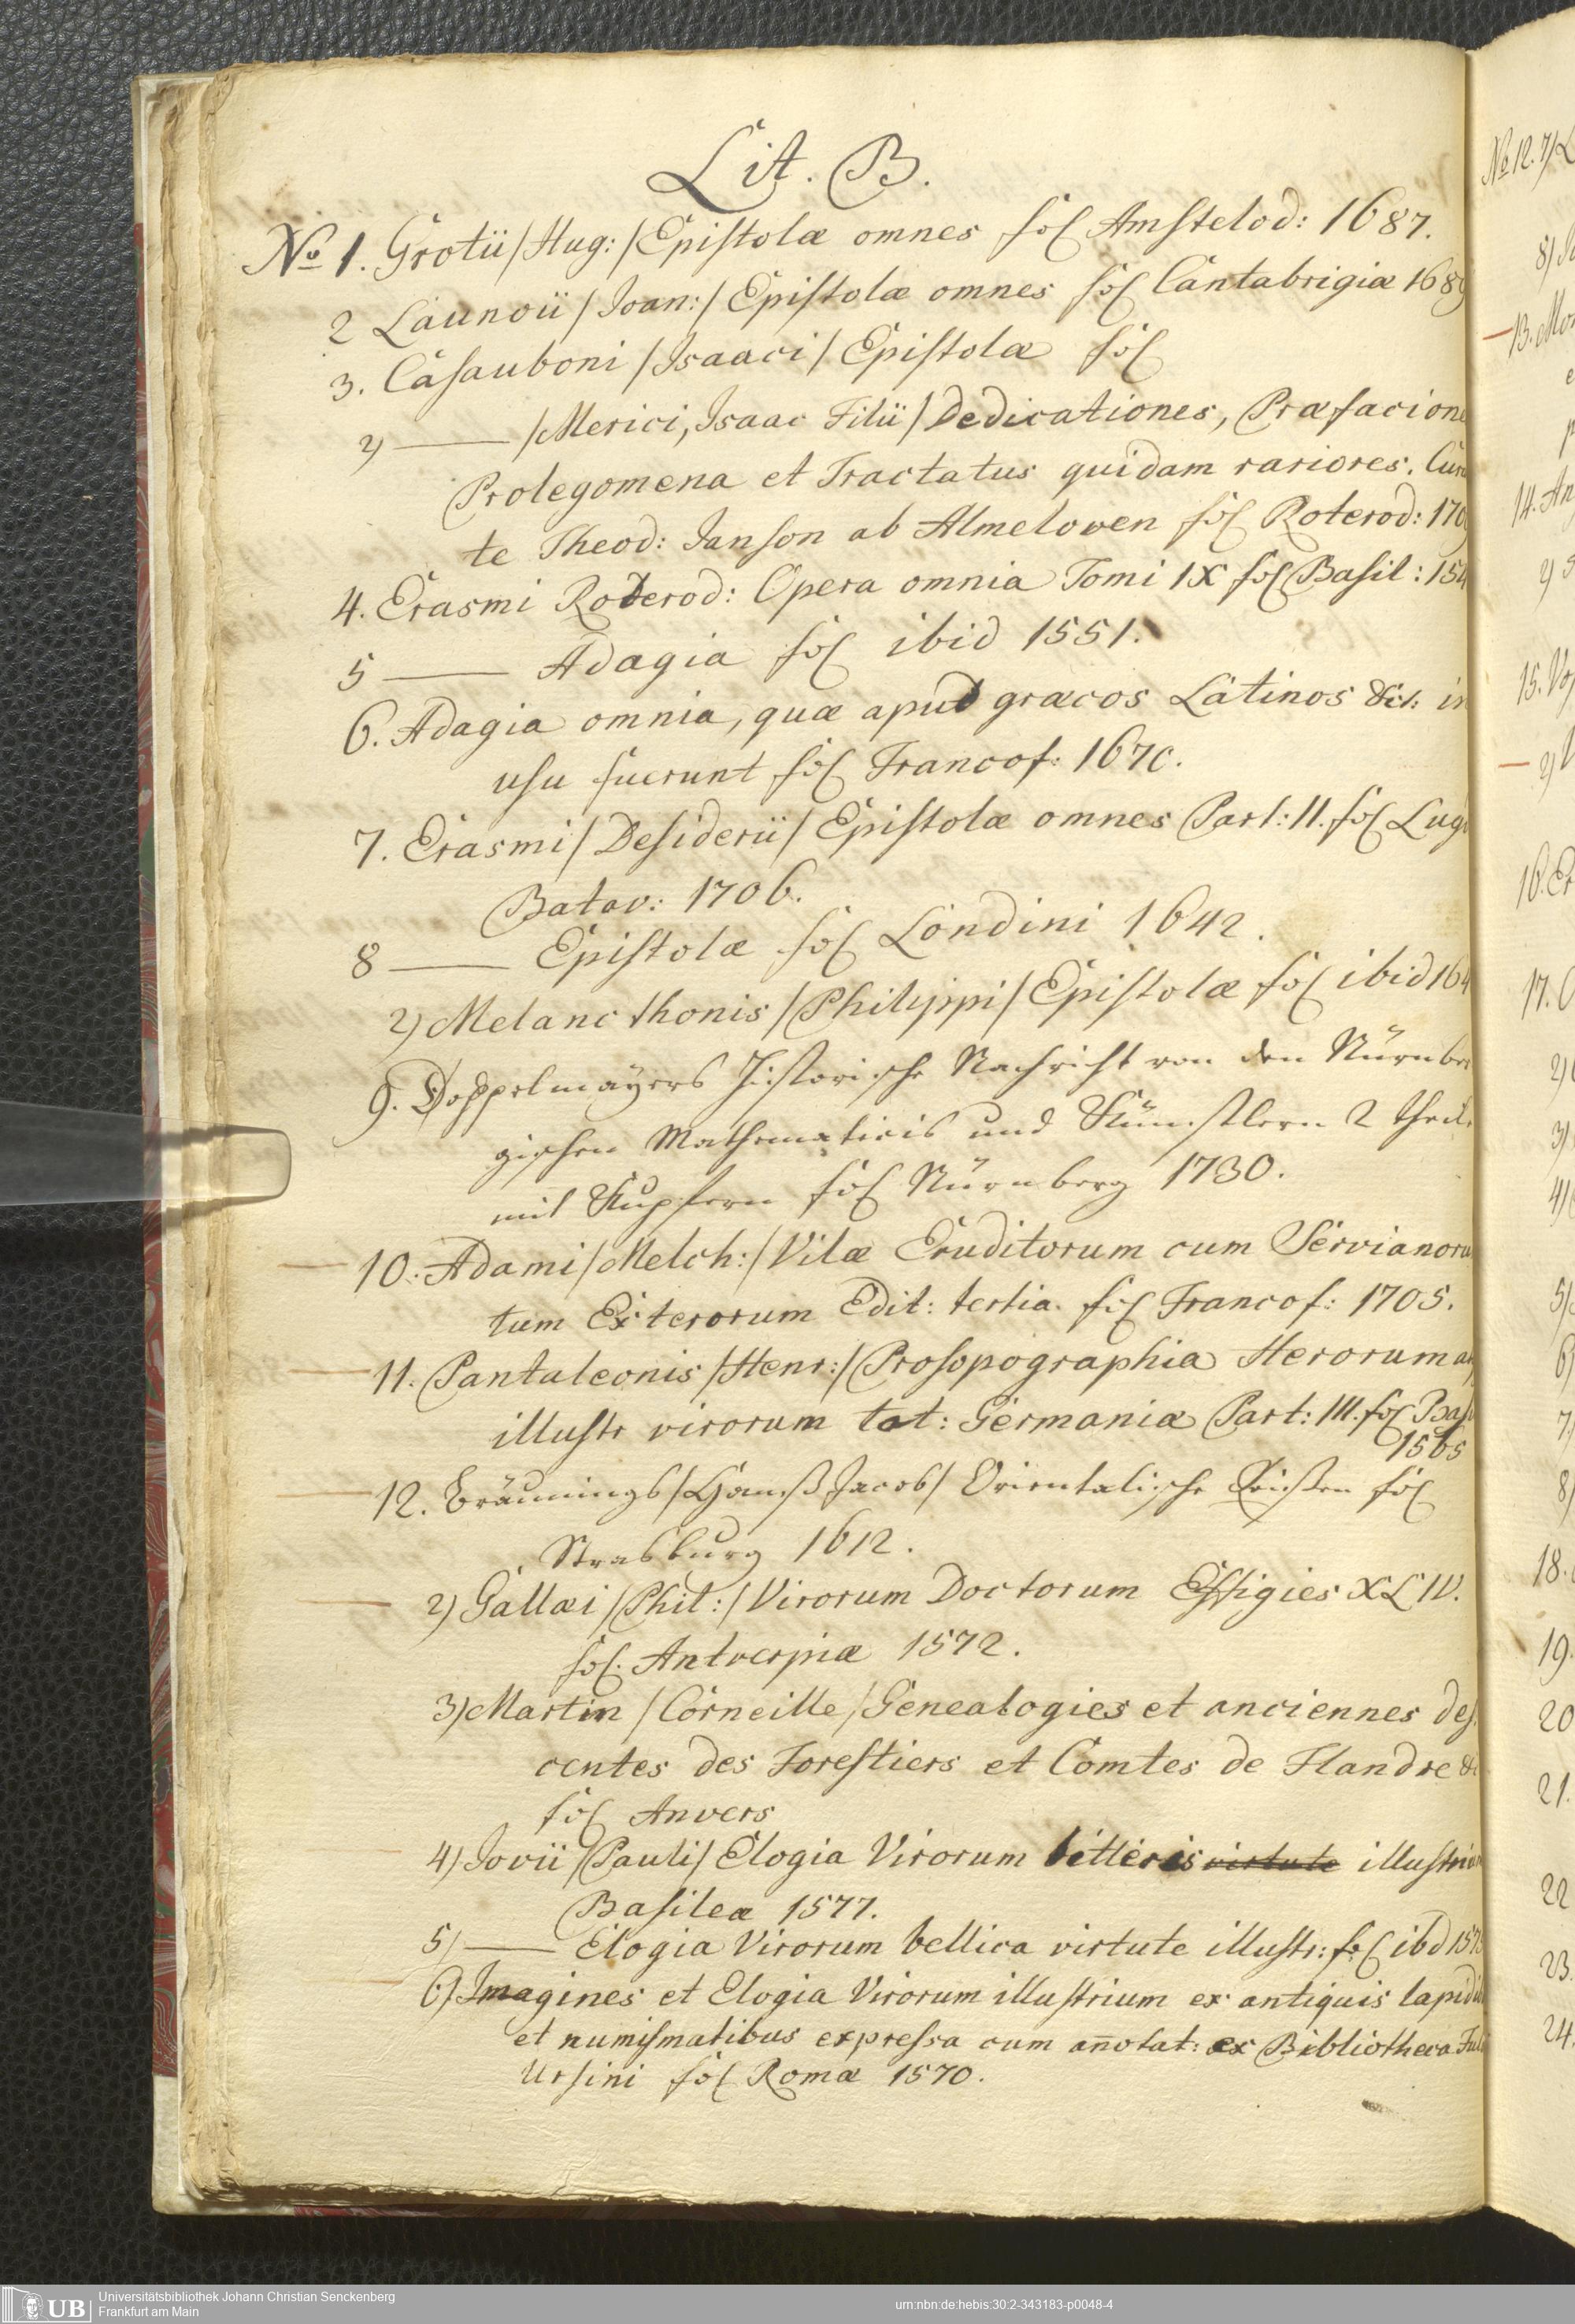 Lit. B.
No 1. Grotii /Hug:/ Epistolæ omnes fol Amstelod: 1687.
2 Launoii /Joan:/ Epistolæ omnes fol Cantabrigiæ 1689
3. Casauboni /Isaaci/ Epistolæ fol
2) —— /Merici, Isaac Filii/ Dedicationes, Præfacione
Prolegomena et Tractatus quidam rariores. Curan
te Theod: Janson ab Almeloveen fol Roterod: 170
4. Erasmi Roterod: Opera omnia Tomi IX fol Basil: 154
5 —— Adagia fol ibid 1551.
6. Adagia omnia, quæ apud græcos Latinos &ct: in
usu fuerunt fol Francof: 1670.
7. Erasmi /Desiderii/ Epistolæ omnes Part: II. fol Lugd
Batav: 1706.
8 —— Epistolæ fol Londini 1642.
2) Melancthonis /Philippi/ Epistolæ fol ibid 164
9. Doppelmayers Historische Nachricht von den Nürnber
gischen Mathematicis und Künstlern 2 theile
mit Kupfern fol Nürnberg 1730.
10. Adami /Melch:/ Vitæ Eruditorum cum Servianoru
tum Exterorum Edit: tertia. fol Francof: 1705.
11. Pantaleonis /Henr:/ Prosopographia Herorum atq
illustr virorum tot: Germaniæ Part: III. fol Basil
1565
12. Bräunings /Hanß Jacob/ Orientalische Reißen fol
Strasburg 1612.
2) Gallæi /Phil:/ Virorum Doctorum Effigies XLIV.
fol. Antverpiæ 1572.
3) Martin /Corneille/ Genealogies et anciennes des
centes des Forestiers et Comtes de Flandre &
fol Anvers
4) Jovii /Pauli/ Elogia Virorum litteris virtute illustrium
Basileæ 1577.
5) —— Elogia Virorum bellica virtute illustr: fol ibd 1575
6) Imagines et Elogia Virorum illustrium ex antiquis lapidib
et numismatibus expressa cum annotat: ex Bibliotheca Ful
Ursini fol Romæ 1570.
No 12. 7)
8)
13. Mon
14. An
2)
15. Vo
2)
16. Er
17.
2)
3)
4)
5)
6)
7)
8)
18.
19.
20
21.
22
23.
24.
UB Universitätsbibliothek Johann Christian Senckenberg
Frankfurt am Main
urn:nbn:de:hebis:30:2-343183-p0048-4